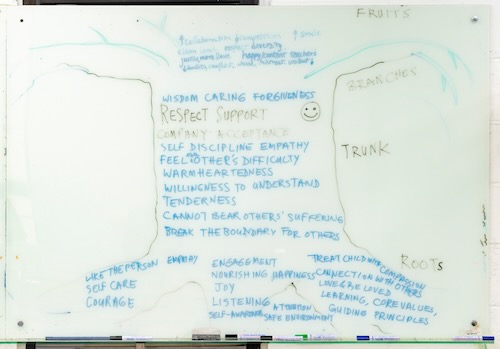 FRUITS
↑collaboration ↓competition ↑smile
diversity
happy content teachers
BRANCHES
WISDOM CARING FORGIVENESS
RESPECT SUPPORT
COMPANY ACCEPTANCE
SELF DISCIPLINE EMPATHY
FEEL OTHER'S DIFFICULTY
TRUNK
WARMHEARTEDNESS
WILLINGNESS TO UNDERSTAND
TENDERNESS
CANNOT BEAR OTHERS' SUFFERING
BREAK THE BOUNDARY FOR OTHERS
ROOTS
LIKE THE PERSON EMPATHY
SELF CARE
COURAGE
ENGAGEMENT
NOURISHING HAPPINESS
JOY
LISTENING
SELF-AWARENESS ATTENTION
SAFE ENVIRONMENT
TREAT CHILD WITH COMPASSION
CONNECTION WITH OTHERS
LOVE & BE LOVED
LEARNING, CORE VALUES,
GUIDING PRINCIPLES